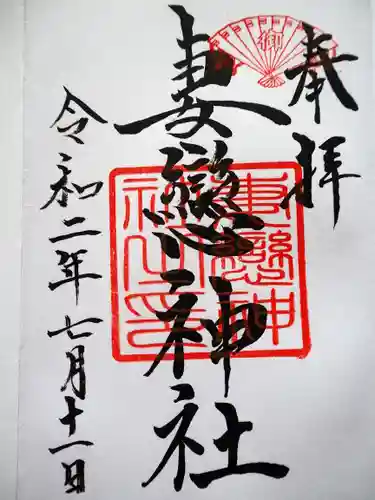 奉拝
御
妻戀神社
妻戀神社之印
令和二年七月十一日